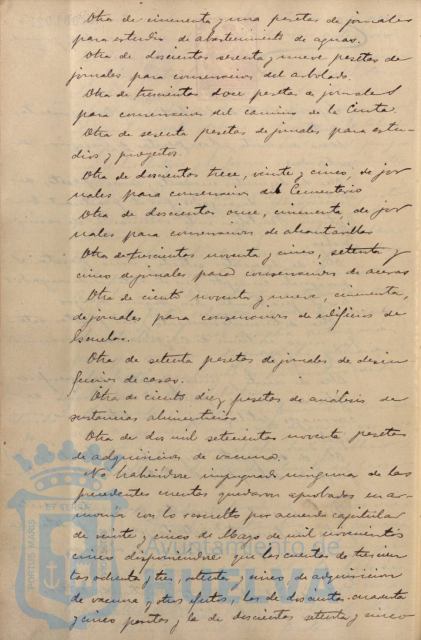 Otra de cincuenta y una pesetas de jornales
para estudios de abastecimiento de aguas.
Otra de doscientos sesenta y nueve pesetas de
jornales para conservacion del arbolado.
Otra de trescientas doce pesetas de jornales
para conservacion del camino de la Cinta.
Otra de sesenta pesetas de jornales para estu-
dios y proyectos.
Otra de doscientos trece, veinte y cinco, de jor
nales para conservacion del Cementerio
Otra de doscientos once, cincuenta, de jor
nales para conservacion de alcantarillas
Otra de noventa y cinco, setenta y
cinco de jornales para conservacion de aceras
Otra de ciento noventa y nueve, cincuenta,
de jornales para conservacion de edificios de
Escuelas.
Otra de setenta pesetas de jornales de desin-
feccion de casas.
Otra de ciento diez pesetas de análisis de
sustancias alimenticias
Otra de dos mil setecientas noventa pesetas
de adquisicion de vacuna.
No habiéndose impugnado ninguna de las
precedentes cuentas quedaron aprobadas en ar-
monía con lo resuelto por acuerdo capitular
de veinte y cinco de Mayo de mil novecientos
cinco disponiendose que las cuentas de trescien
tas ochenta y tres, ochenta y cinco, de adquisicion
de vacuna y otros efectos, las de doscientas cuarenta
y cinco pesetas y la de doscientos setenta y cinco
Ayuntamiento de
HUELVA
PORTUS MARIS
ET TERRAE